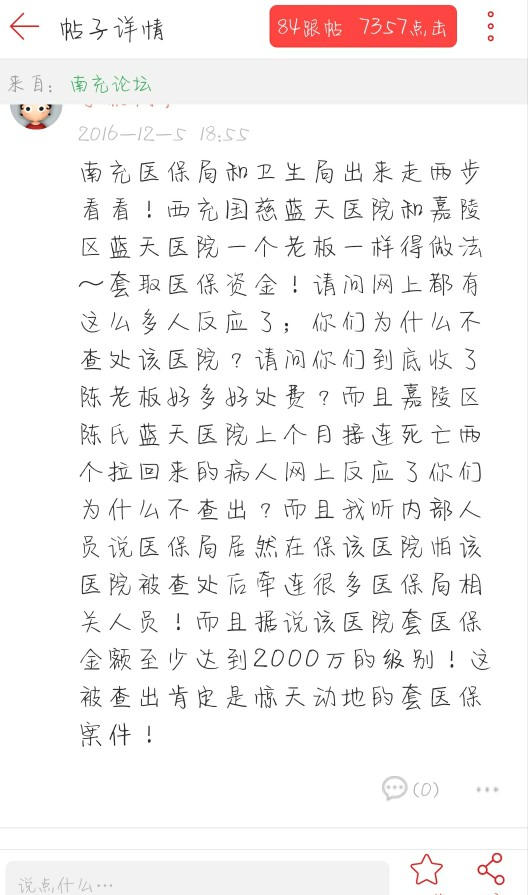 帖子详情
84跟帖 7357点击
来自：南充论坛
2016-12-5 18:55
南充医保局和卫生局出来走两步
看看！西充国慈蓝天医院和嘉陵
区蓝天医院一个老板一样得做法
～套取医保资金！请问网上都有
这么多人反应了；你们为什么不
查处该医院？请问你们到底收了
陈老板好多好处费？而且嘉陵区
陈氏蓝天医院上个月接连死亡两
个拉回来的病人网上反应了你们
为什么不查出？而且我听内部人
员说医保局居然在保该医院怕该
医院被查处后牵连很多医保局相
关人员！而且据说该医院套医保
金额至少达到2000万的级别！这
被查出肯定是惊天动地的套医保
案件！
(0)
说点什么…